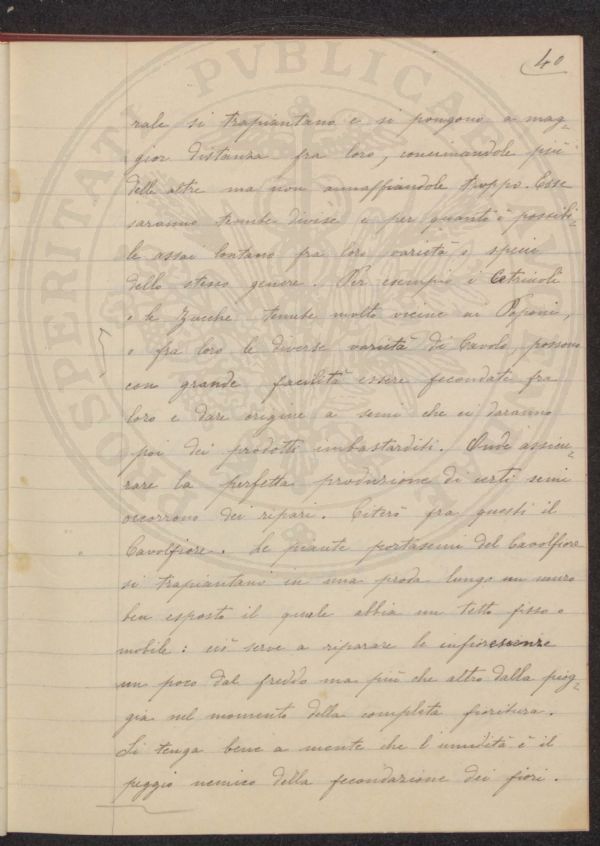 40
rale si trapiantano e si pongono a mag-
gior distanza fra loro, concimandole più
delle altre ma non annaffiandole troppo. Esse
saranno tenute divise e per quanto è possibi-
le assai lontano fra loro varietà o specie
dello stesso genere. Per esempio i Cetriuoli
o le Zucche tenute molto vicine ai Poponi,
o fra loro le diverse varietà di Cavolo, possono
con grande facilità essere fecondati fra
loro e dare origine a semi che ci daranno
poi dei prodotti imbastarditi. Onde assicu-
rare la perfetta produzione di certi semi
occorrono dei ripari. Citerò fra questi il
Cavolfiore. Le piante portasemi del Cavolfiore
si trapiantano in una proda lungo un muro
ben esposto il quale abbia un tetto fisso o
mobile: ciò serve a riparare le infiorescenze
un poco dal freddo ma più che altro dalla piog-
gia nel momento della completa fioritura.
Si tenga bene a mente che l'umidità è il
peggio nemico della fecondazione dei fiori.
PROSPERITATI PUBLICAE